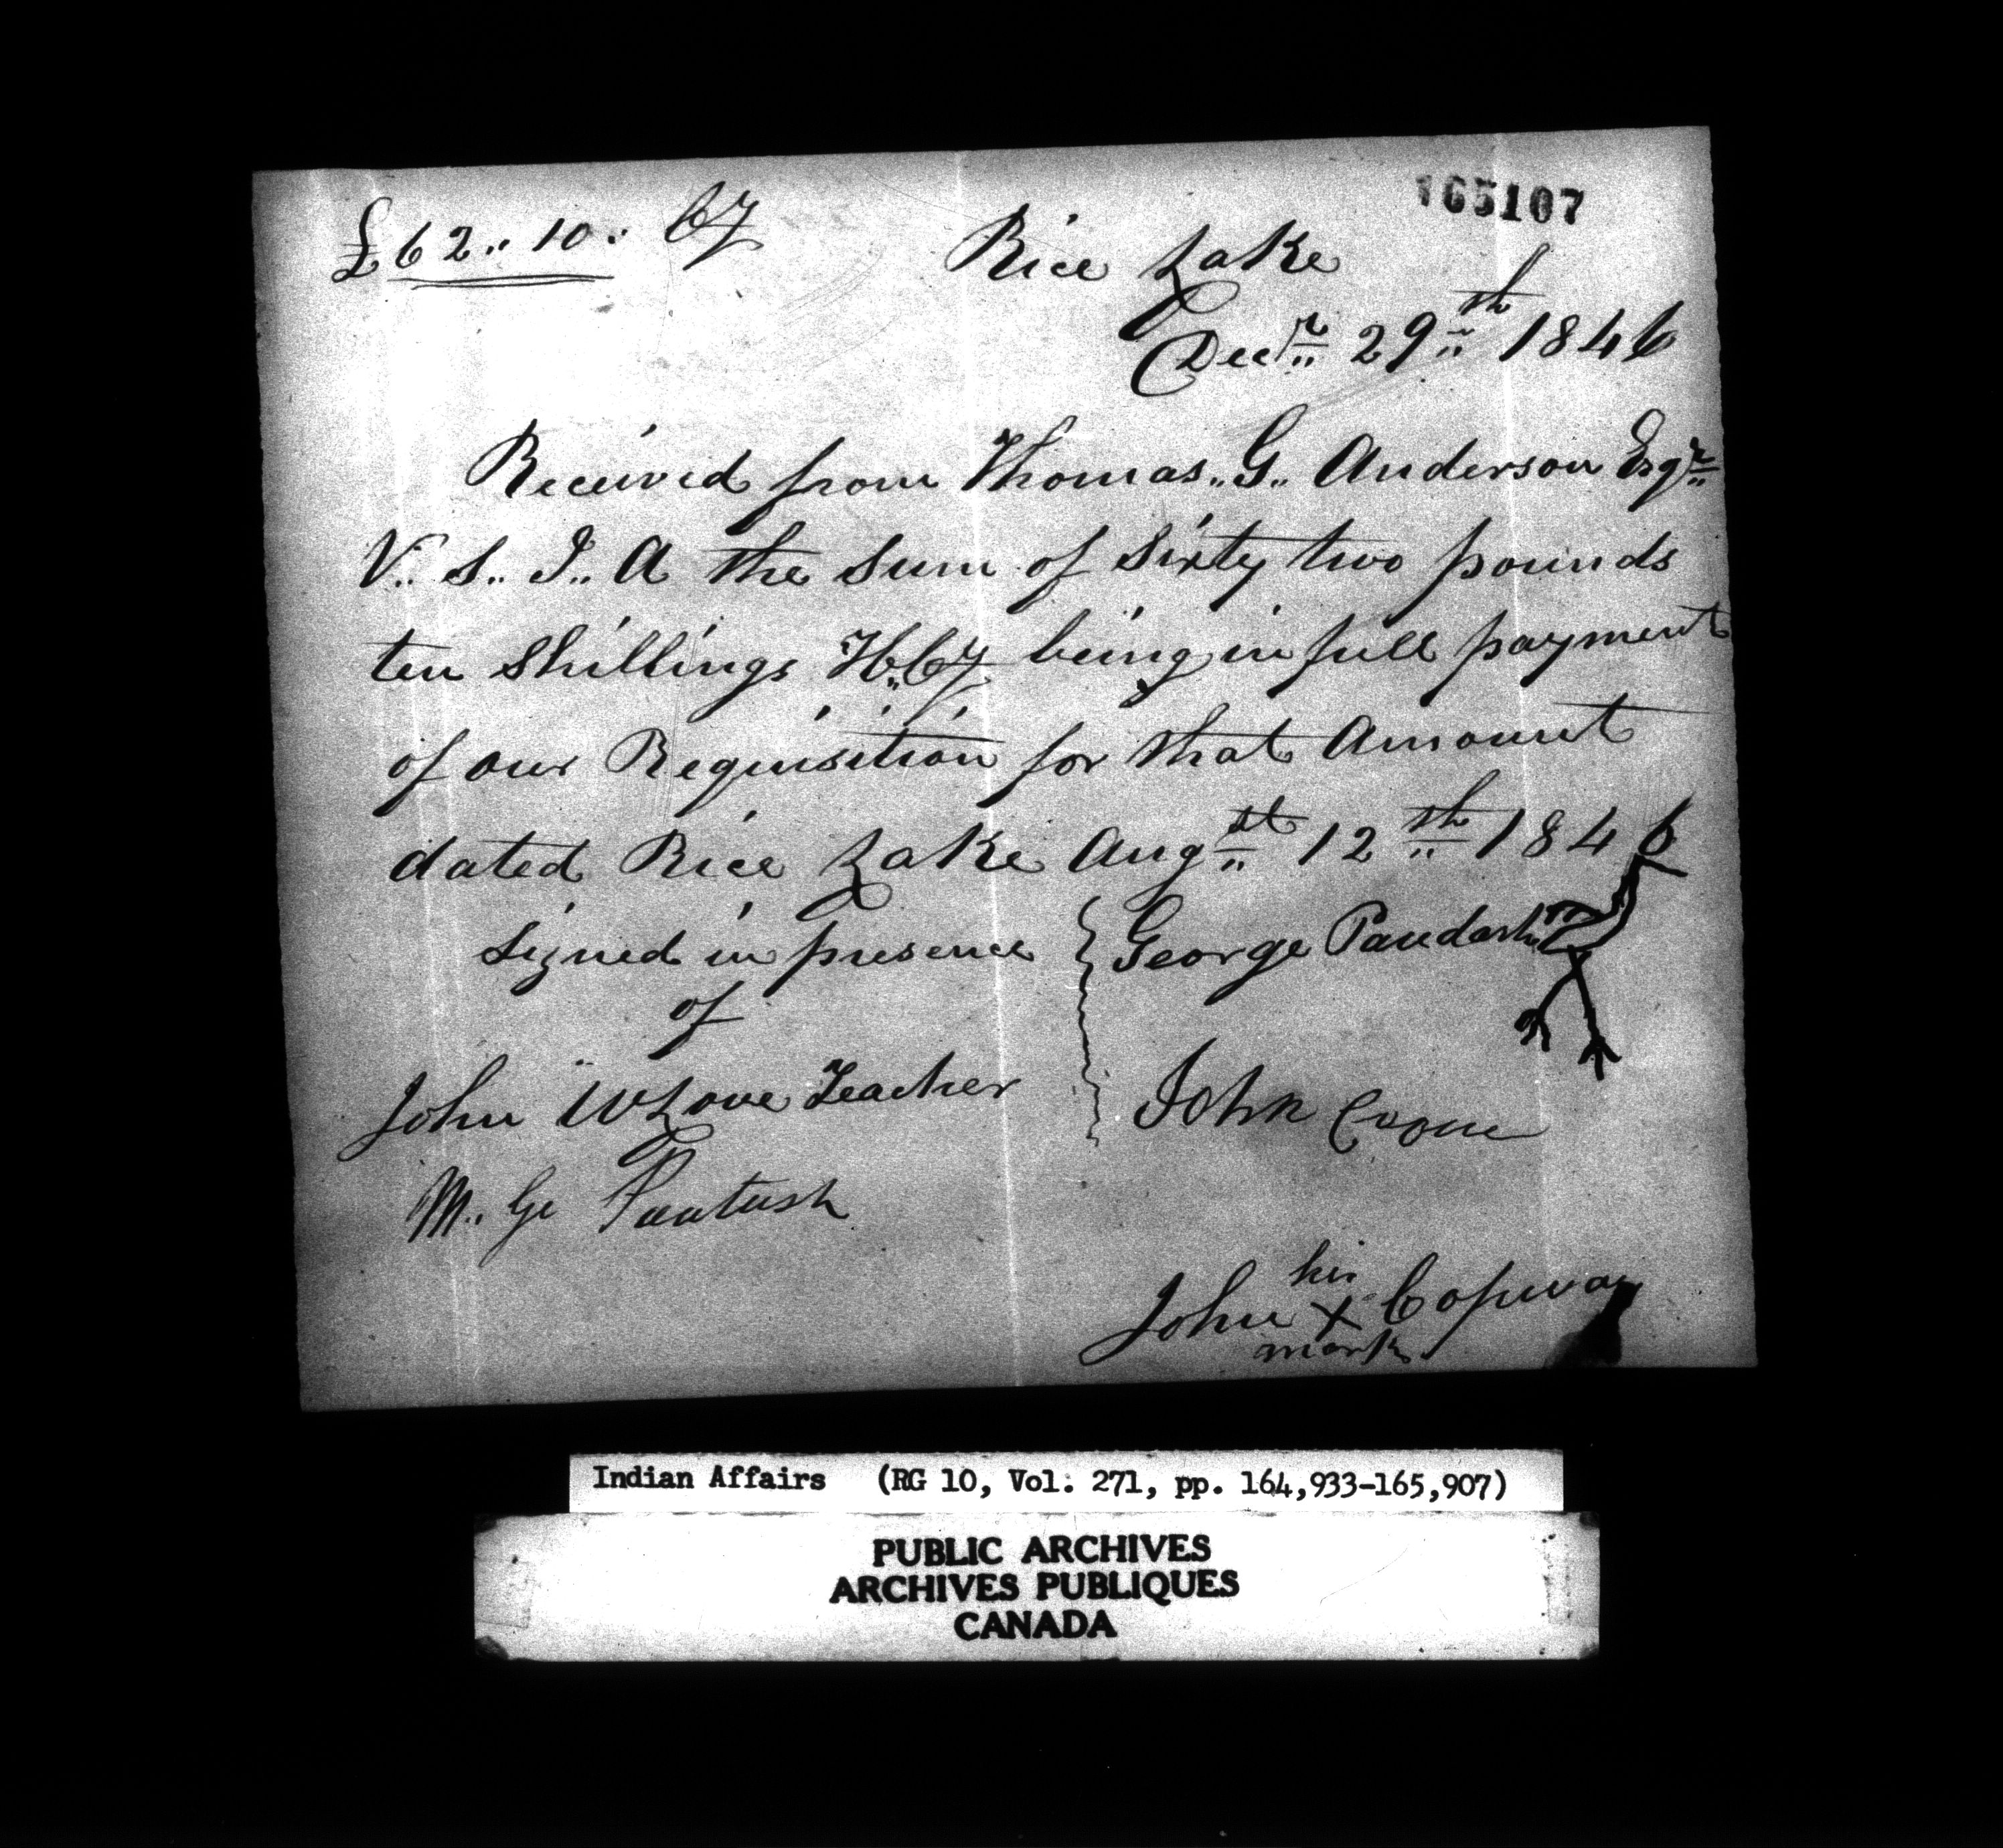 165107
£62.. 10.. Cy
Rice Lake
Decr 29th 1846
Received from Thomas.. G.. Anderson Esqr
V.. S.. I.. A the Sum of Sixty two pounds
ten Shillings H..Cy being in full payment
of our Requisition for that Amount
dated Rice Lake Augst 12th 1846
Signed in presence
of
George Paudash
John W Love Teacher
John Crow
M.. Ge Pautash
his
John X Copway
mark
Indian Affairs (RG 10, Vol. 271, pp. 164,933-165,907)
PUBLIC ARCHIVES
ARCHIVES PUBLIQUES
CANADA